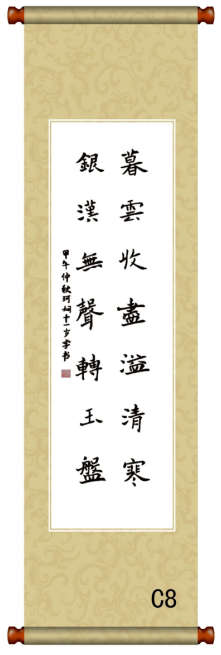 暮雲收盡溢清寒
銀漢無聲轉玉盤
甲午仲秋
十一岁
书
C8